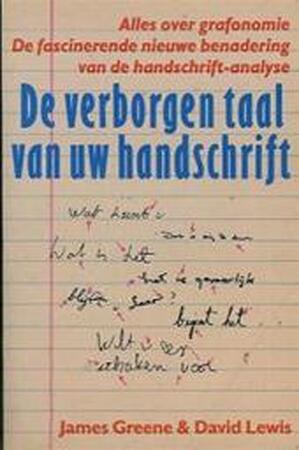 Alles over grafonomie
De fascinerende nieuwe benadering
van de handschrift-analyse
De verborgen taal
van uw handschrift
Wat kunt u
Wat is het
het is gevaarlijk
blijft
begint het
Wilt u een
voor
James Greene & David Lewis